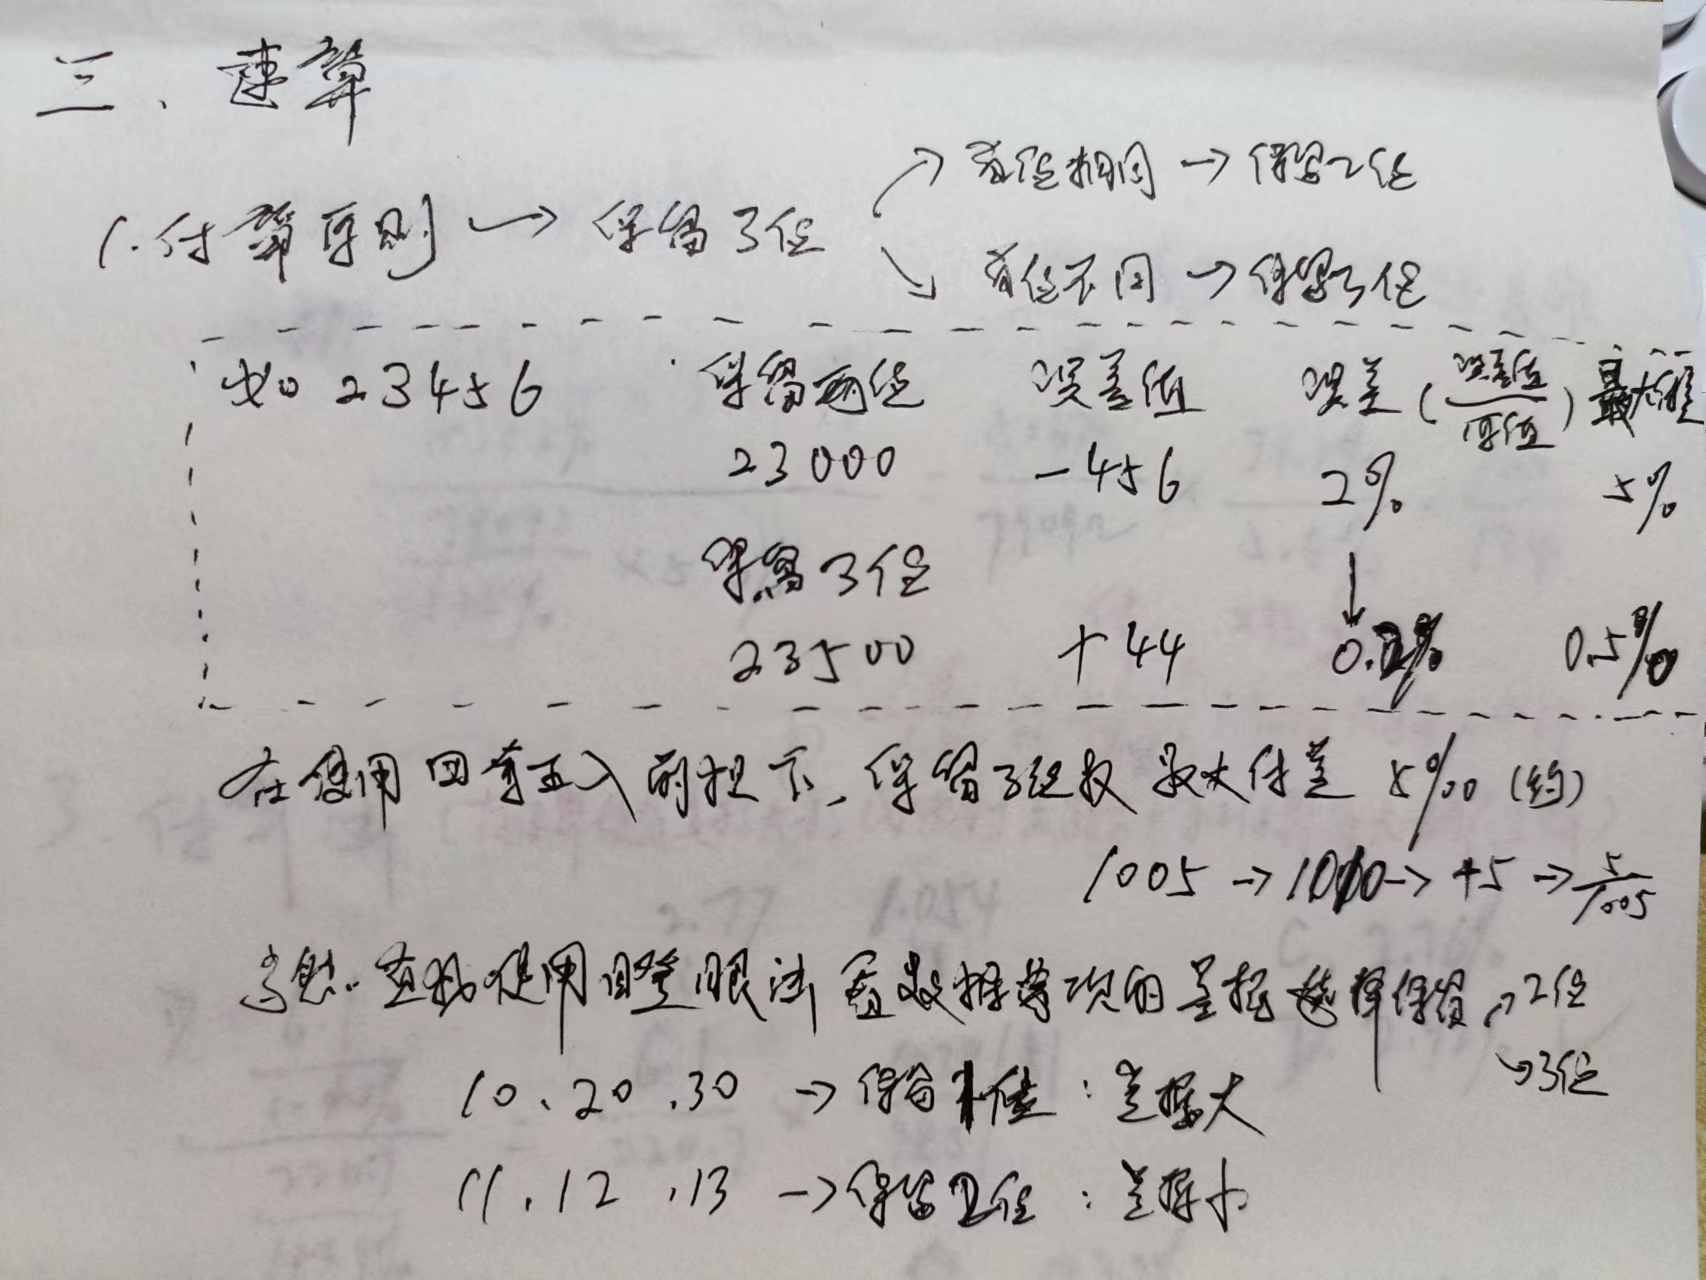 三、速算
首位相同 → 保留2位
1.估算原则 → 保留3位
首位不同 → 保留3位
如 23456 保留两位 误差值 误差(误差值/原值) 最大误
23000 -456 2% 5%
保留3位
23500 +44 0.2% 0.5%
在使用四舍五入前提下、保留3位 最大估差 5‰ (约)
1005 → 1010 → +5 → 5/1005
当然. 使用 法 看数据 项的差距选择保留 → 2位
→ 3位
10、20、30 → 保留1位：差距大
11、12、13 → 保留2位：差距小